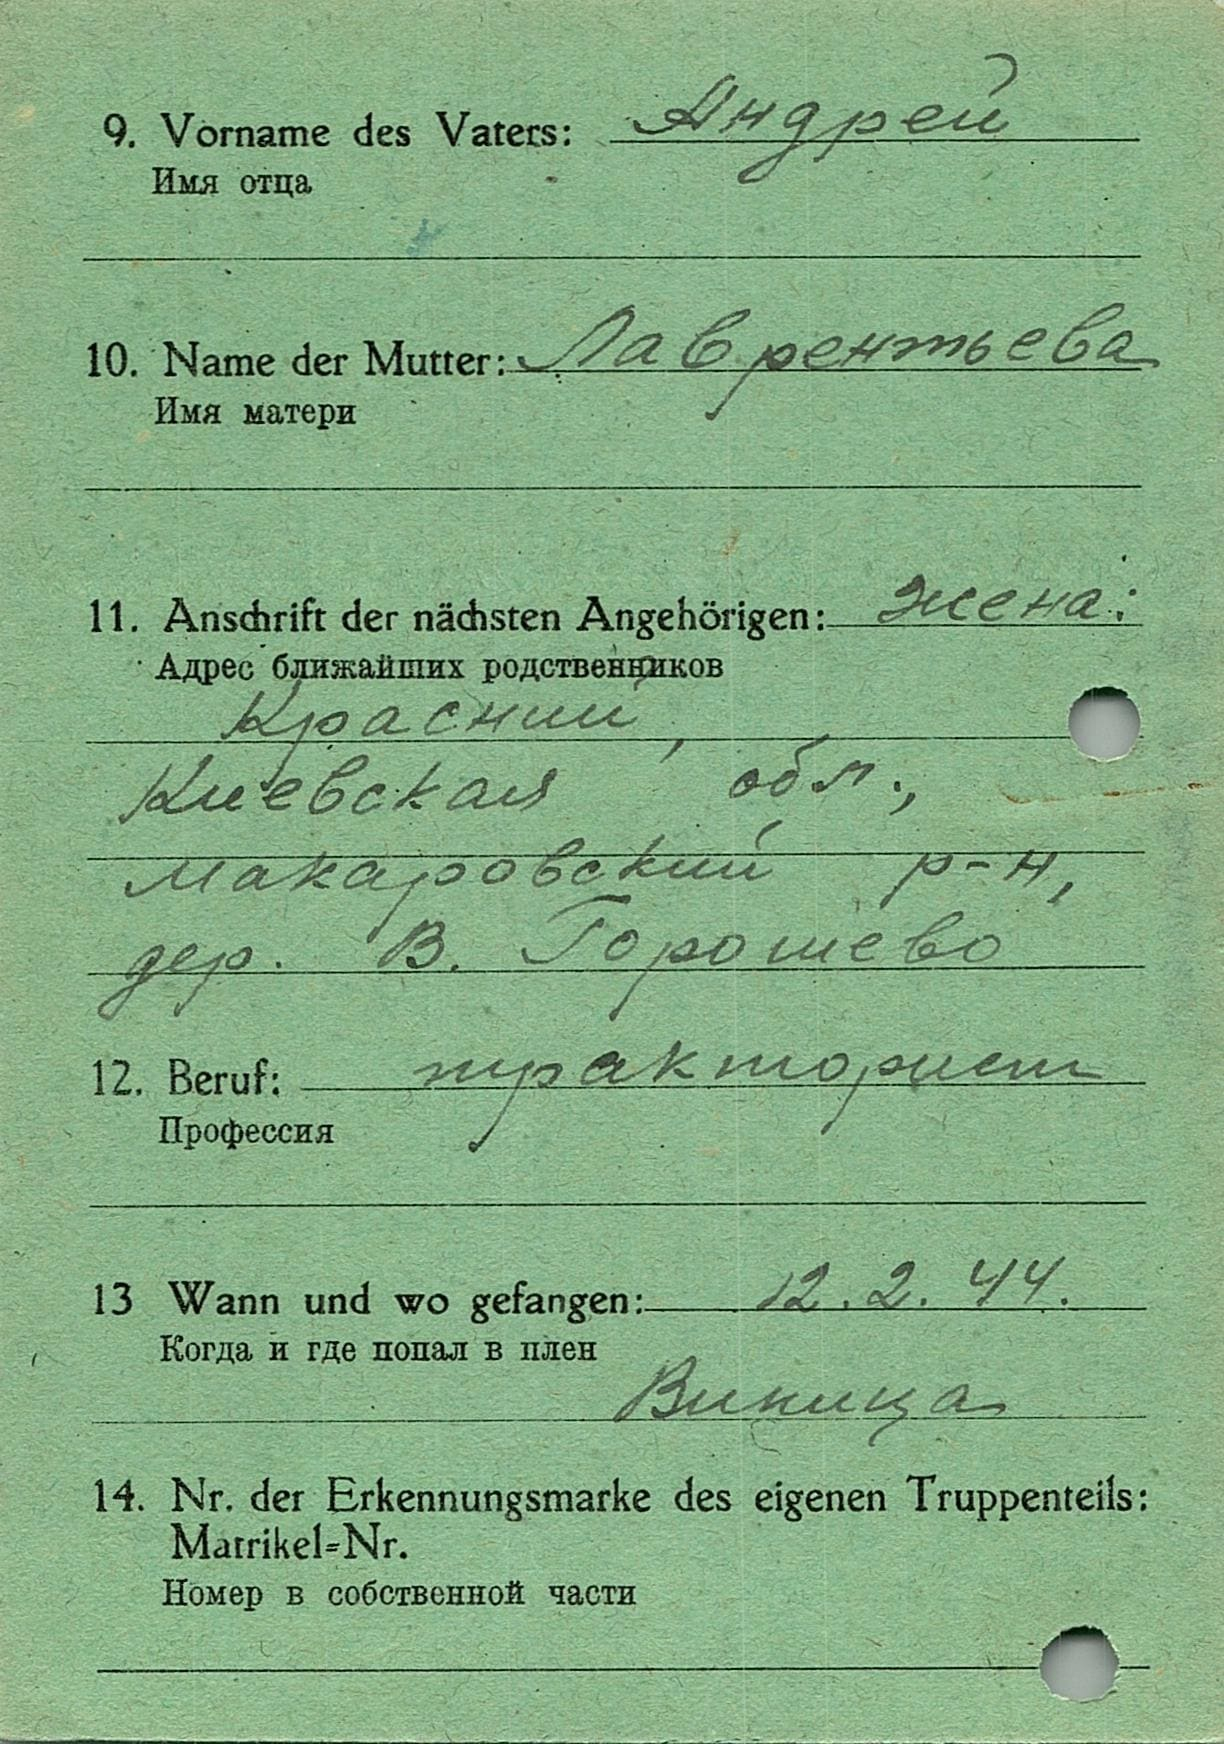 9. Vorname des Vaters: Андрей
Имя отца
10. Name der Mutter: Лаврентьева
Имя матери
11. Anschrift der nächsten Angehörigen: жена:
Адрес ближайших родственников
Красний,
Киевская обл.,
Макаровский р-н,
дер. В. Горошево
12. Beruf: тракторист
Профессия
13 Wann und wo gefangen: 12.2.44.
Когда и где попал в плен
Виница
14. Nr. der Erkennungsmarke des eigenen Truppenteils:
Matrikel-Nr.
Номер в собственной части